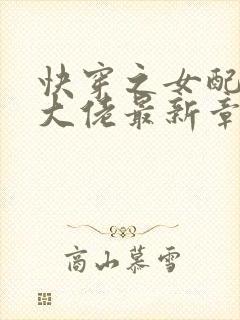 快穿之女配
大佬最新章
高山慕雪